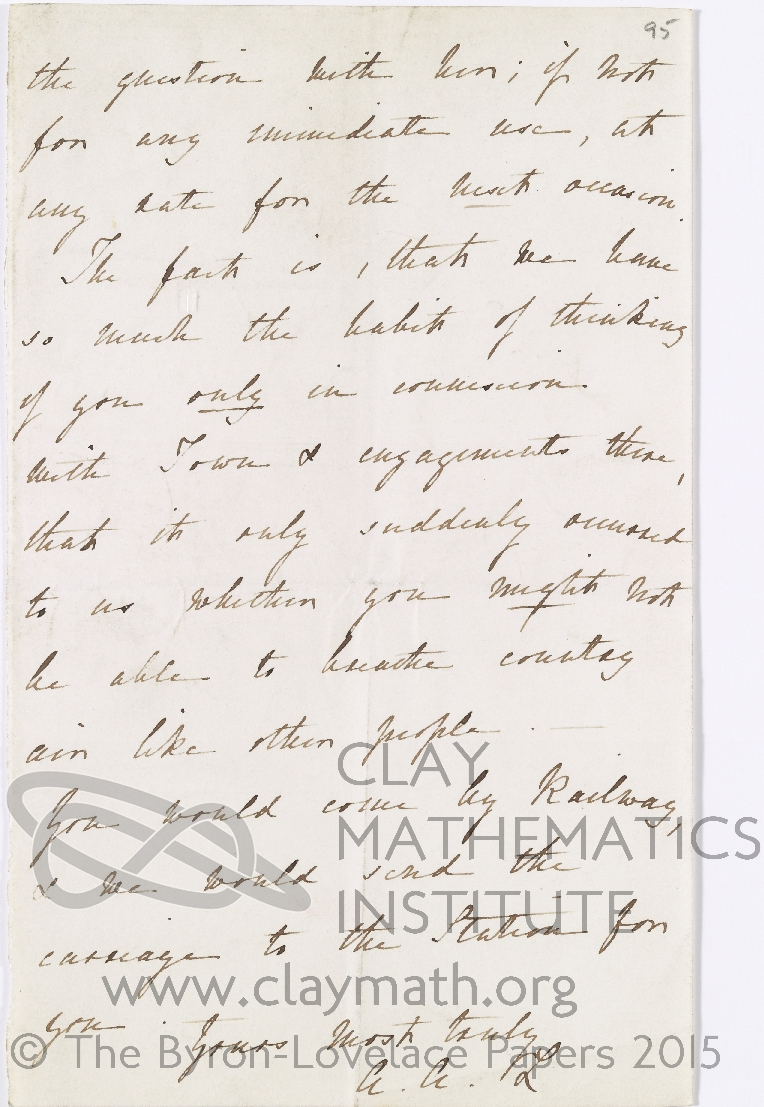 95
the question with him; if not
for any immediate use, at
any rate for the next occasion.
The fact is, that we have
so much the habit of thinking
of you only in connexion
with Town & engagements there,
that it only suddenly occurred
to us whether you might not
be able to breathe country
air like other people. —
You would come by Railway,
& we would send the
carriage to the Station for
you. Yours most truly
A. A. L
CLAY
MATHEMATICS
INSTITUTE
www.claymath.org
© The Byron-Lovelace Papers 2015